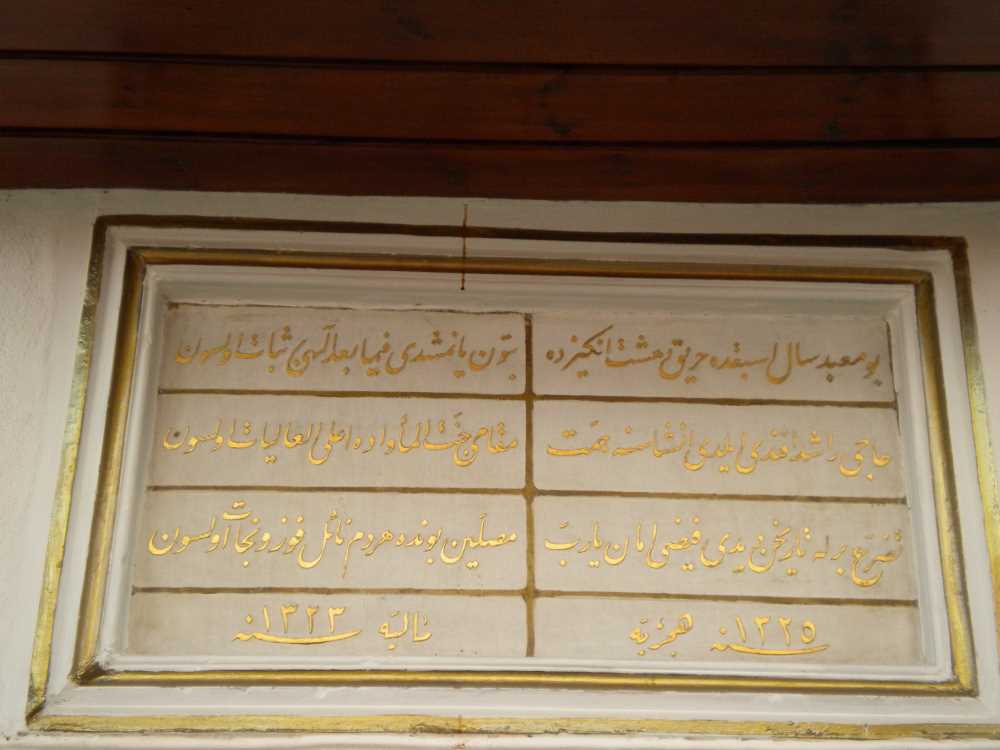 بو معبد سال اسبقده حریق دهشت انكیزده
بتون یانمشدی فیما بعد آلهی ثبات اولسون
حاجی راشد افندی ایلدی انشاسنه همّت
مقامی جنّت المأواده اعلی العالیات اولسون
تضرّع برله تاریخن دیدی فیضی امان یا ربّ
مصلّین بونده هردم نائل فوز و نجات اولسون
سنه ١٣٢٥ هجریّه
مالیّه سنه ١٣٢٣